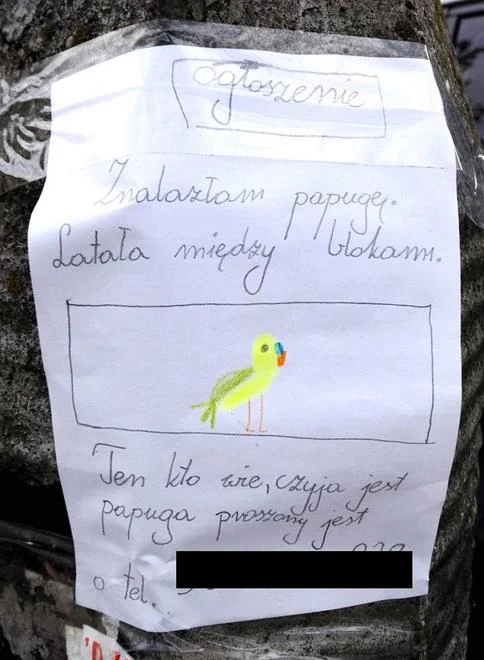 Ogłoszenie
Znalazłam papugę.
Latała między blokami.
Ten kto wie, czyja jest
papuga proszony jest
o tel.